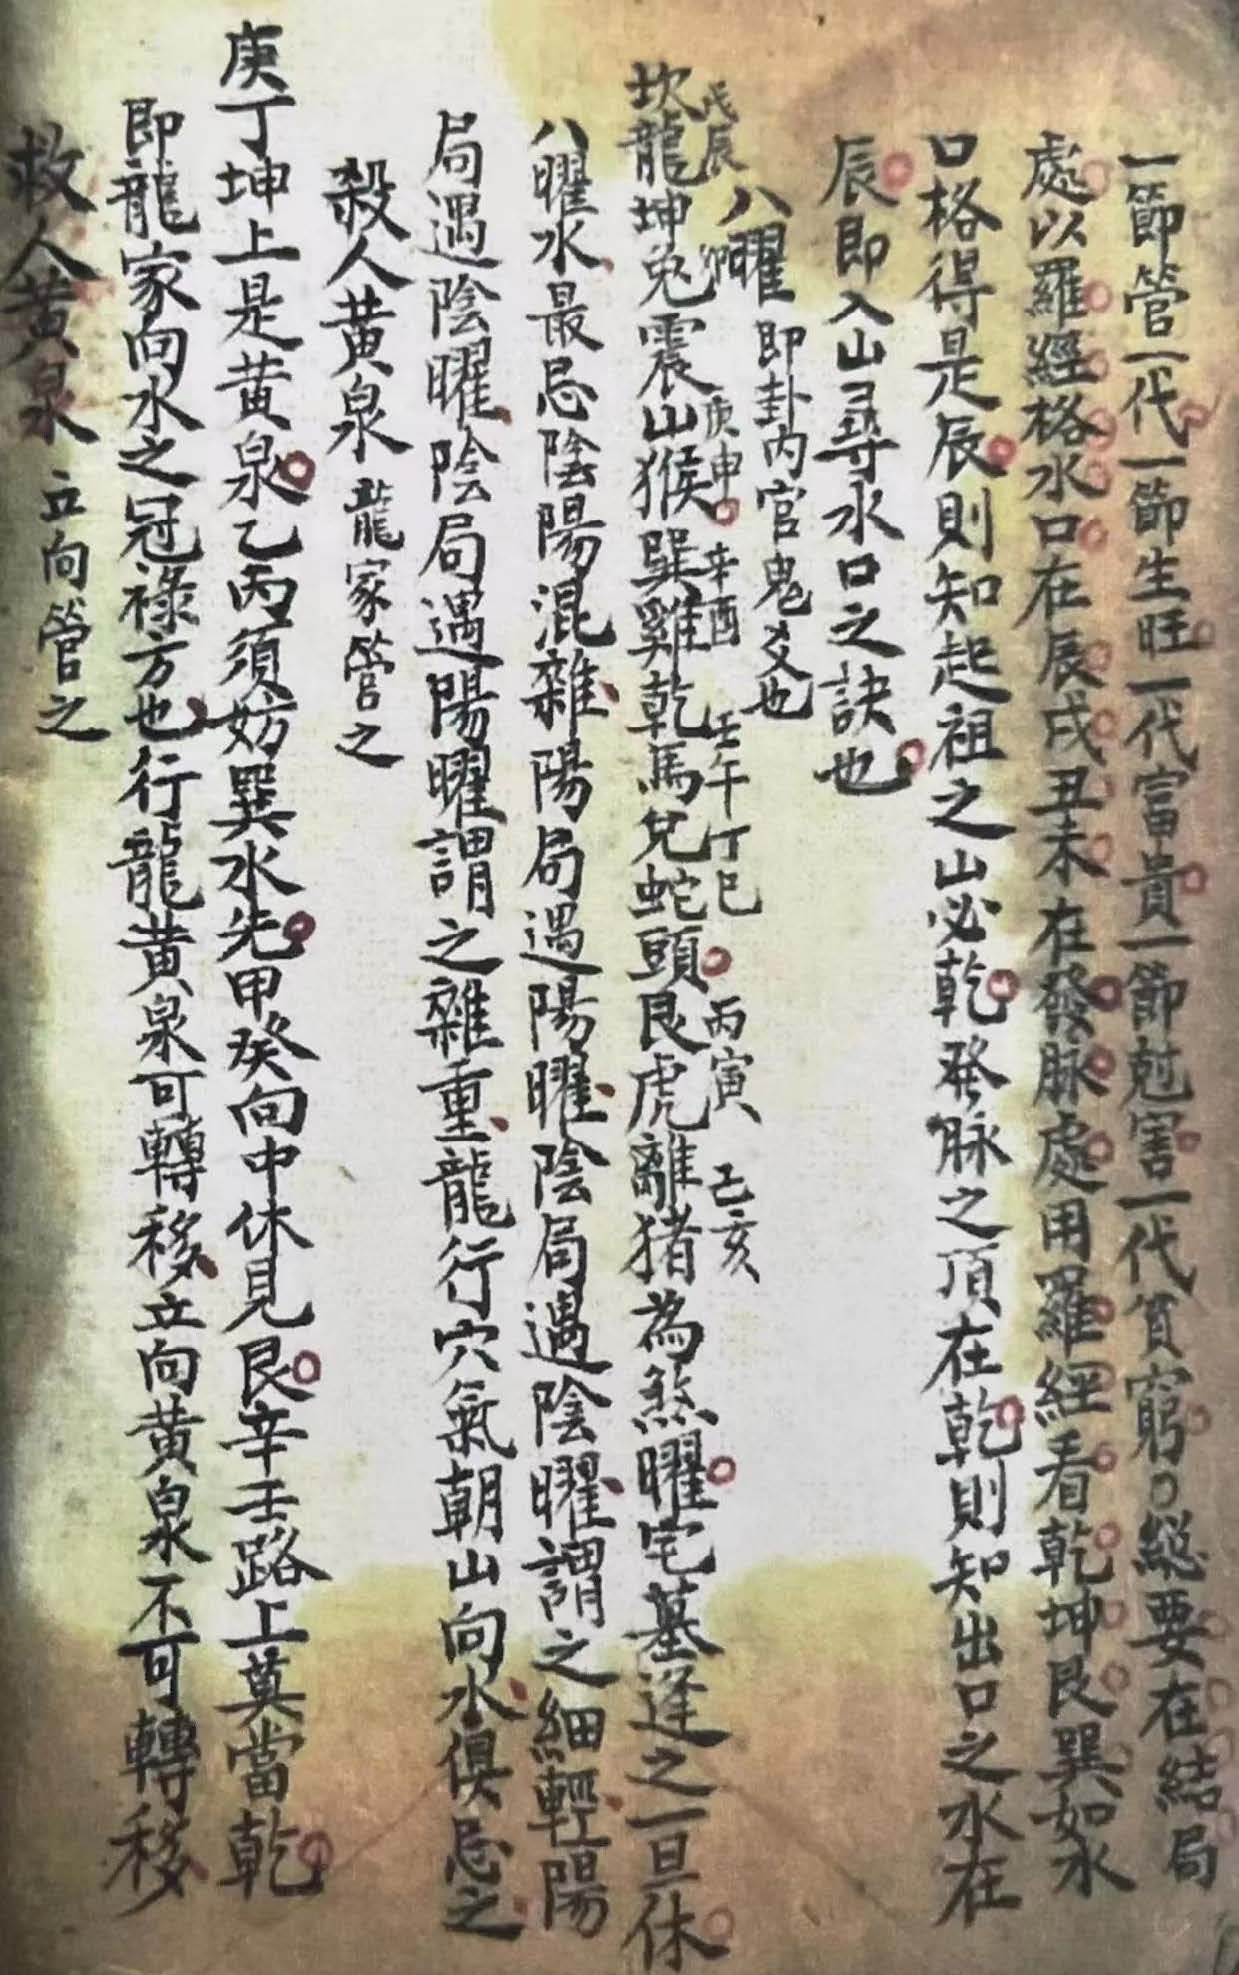 一節管一代一節生旺一代富貴一節尅害一代貧窮〇総要在結局
處以羅經格水口在辰戌丑未在發脉處用羅經看乾坤艮巽如水
口格得是辰則知起祖之山必乾發脉之頂在乾則知出口之水在
辰即入山尋水口之訣也
八曜 即卦内官鬼爻也
戊辰 庚申 辛酉 壬午 丁巳 丙寅 己亥
坎龍坤兎震山猴巽雞乾馬兌蛇頭艮虎離猪為煞曜宅墓逢之一旦休
八曜水最忌陰陽混雜陽局遇陽曜陰局遇陰曜謂之細輕陽
局遇陰曜陰局遇陽曜謂之雜重龍行穴氣朝山向水俱忌之
殺人黃泉 龍家管之
庚丁坤上是黃泉乙丙須妨巽水先甲癸向中休見艮辛壬路上莫當乾
即龍家向水之冠祿方也行龍黃泉可轉移立向黃泉不可轉移
救人黃泉 立向管之